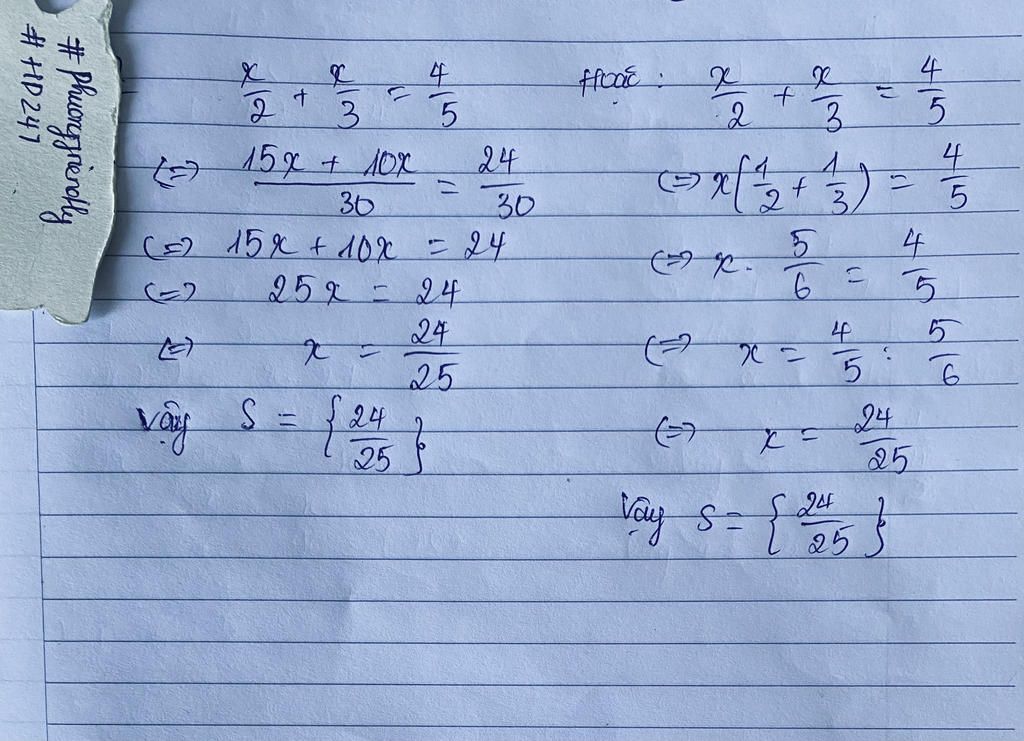 #phuongfrierdly
#HD247
x/2 + x/3 = 4/5
⇔ (15x + 10x)/30 = 24/30
⇔ 15x + 10x = 24
⇔ 25x = 24
⇔ x = 24/25
Vậy S = {24/25}
Hoặc : x/2 + x/3 = 4/5
⇔ x(1/2 + 1/3) = 4/5
⇔ x . 5/6 = 4/5
⇔ x = 4/5 : 5/6
⇔ x = 24/25
Vậy S = {24/25}